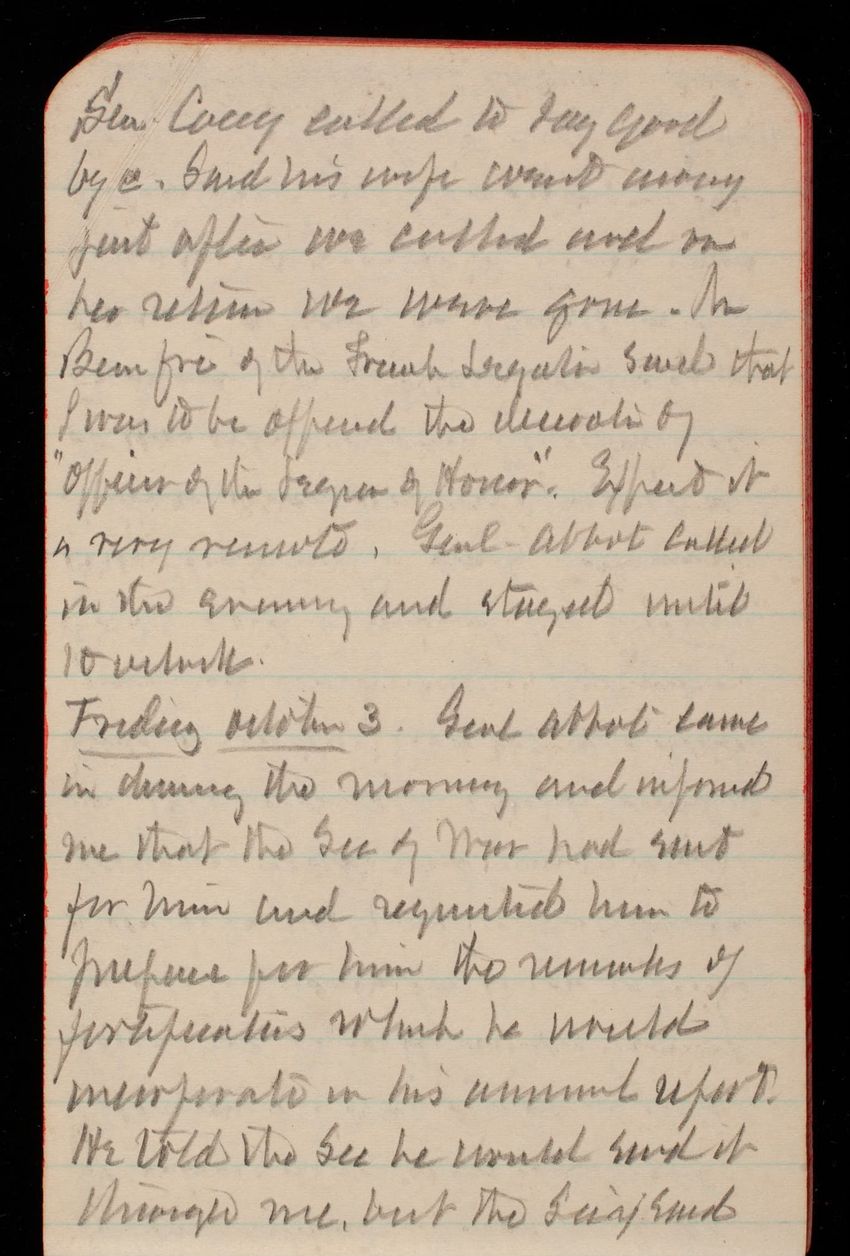 Sen. Casey called to say good
bye. Said his wife went away
just after we called and on
her return we were gone. Mr
of the French Legation said that
I was to be offered the decoration of
"Officer of the Legion of Honor". Expect it
is very remote. Genl. Abbot called
in the evening and stayed until
10 o'clock.
Friday October 3. Genl Abbot came
in during the morning and informed
me that the Sec of War had sent
for him and requested him to
prepare for him the remarks of
fortifications which he would
incorporate in his annual report.
He told the Sec he would send it
through me, but the Secy said